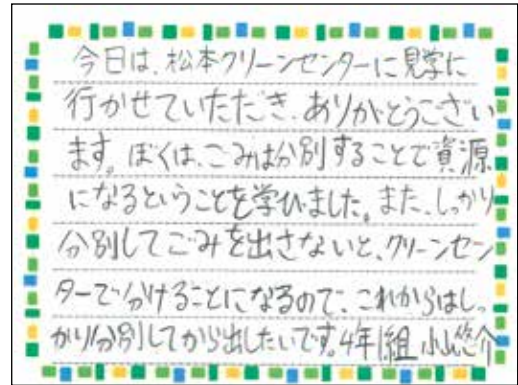 今日は、松本クリーンセンターに見学に
行かせていただき、ありがとうござい
ます。ぼくは、ごみは分別することで資源
になるということを学びました。また、しっかり
分別してごみを出さないと、クリーンセン
ターで分けることになるので、これからはしっ
かり分別してから出したいです。4年1組 小山悠介